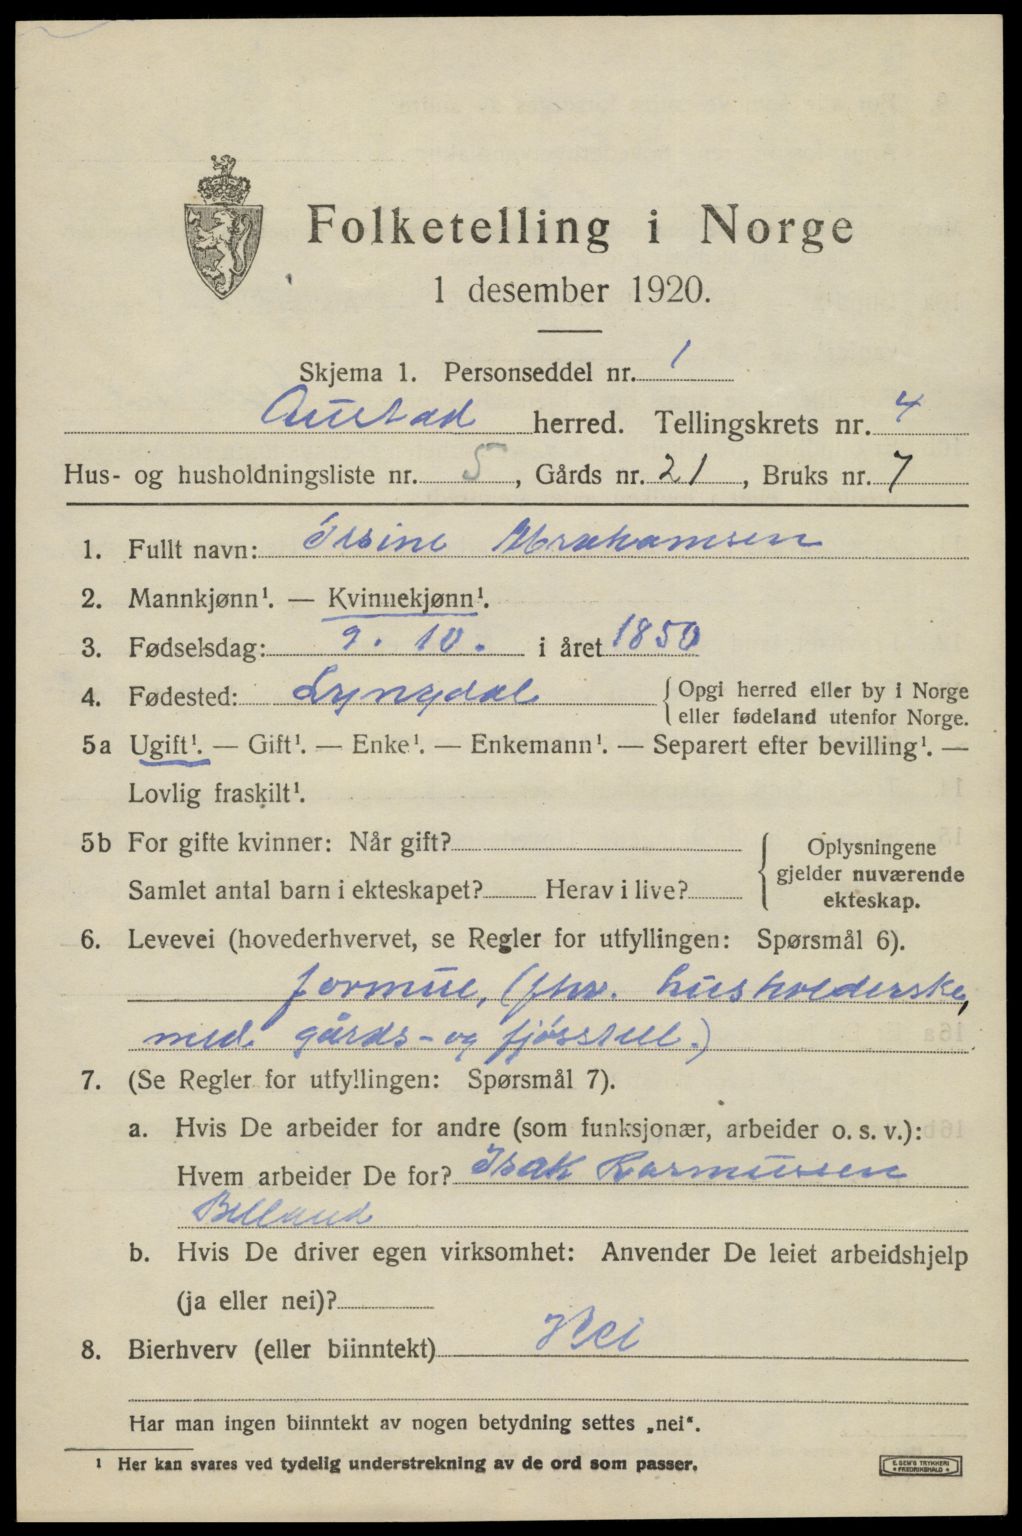 Folketelling i Norge
1 desember 1920.
Skjema 1. Personseddel nr. 1
Austad herred. Tellingskrets nr. 4
Hus- og husholdningsliste nr. 5, Gårds nr. 21, Bruks nr. 7
1. Fullt navn: Abrahamsen
2. Mannkjønn¹. — Kvinnekjønn¹.
3. Fødselsdag: 9. 10. i året 1850
4. Fødested: Lyngdal {Opgi herred eller by i Norge
eller fødeland utenfor Norge.
5a Ugift¹. — Gift¹. — Enke¹. — Enkemann¹. — Separert efter bevilling¹. —
Lovlig fraskilt¹.
5b For gifte kvinner: Når gift?
Samlet antal barn i ekteskapet? Herav i live?
Oplysningene
gjelder nuværende
ekteskap.
6. Levevei (hovederhvervet, se Regler for utfyllingen: Spørsmål 6).
formue, (fhv. husholderske,
med gårds- og fjøsstell.)
7. (Se Regler for utfyllingen: Spørsmål 7).
a. Hvis De arbeider for andre (som funksjonær, arbeider o. s. v.):
Hvem arbeider De for? Isak Rasmussen
Birkeland
b. Hvis De driver egen virksomhet: Anvender De leiet arbeidshjelp
(ja eller nei)?
8. Bierhverv (eller biinntekt) Nei
Har man ingen biinntekt av nogen betydning settes „nei“.
¹ Her kan svares ved tydelig understrekning av de ord som passer.
E. SEM'S TRYKKERI
FREDRIKSHALD